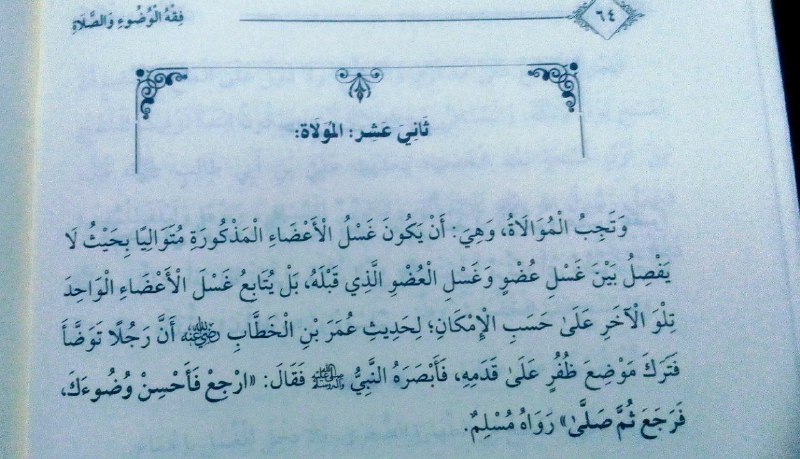 فِقْهُ الْوُضُوءِ وَالصَّلَاةِ ٦٤
ثَانِيَ عَشِرَ: المُوَلَاة:
وَتَجِبُ الْمُوَالَاةُ، وَهِيَ: أَنْ يَكُونَ غَسْلُ الْأَعْضَاءِ الْمَذْكُورَةِ مُتَوَالِيًا بِحَيْثُ لَا
يَفْصِلُ بَيْنَ غَسْلِ عُضْوٍ وَغَسْلِ الْعُضْوِ الَّذِي قَبْلَهُ، بَلْ يُتَابِعُ غَسْلَ الْأَعْضَاءِ الْوَاحِدَ
تِلْوَ الْآخَرِ عَلَىٰ حَسَبِ الْإِمْكَانِ؛ لِحَدِيثِ عُمَرَ بْنِ الْخَطَّابِ رضي الله عنه أَنَّ رَجُلًا تَوَضَّأَ
فَتَرَكَ مَوْضِعَ ظُفُرٍ عَلَىٰ قَدَمِهِ، فَأَبْصَرَهُ النَّبِيُّ ﷺ فَقَالَ: «ارْجِعْ فَأَحْسِنْ وُضُوءَكَ،
فَرَجَعَ ثُمَّ صَلَّىٰ» رَوَاهُ مُسْلِمٌ.